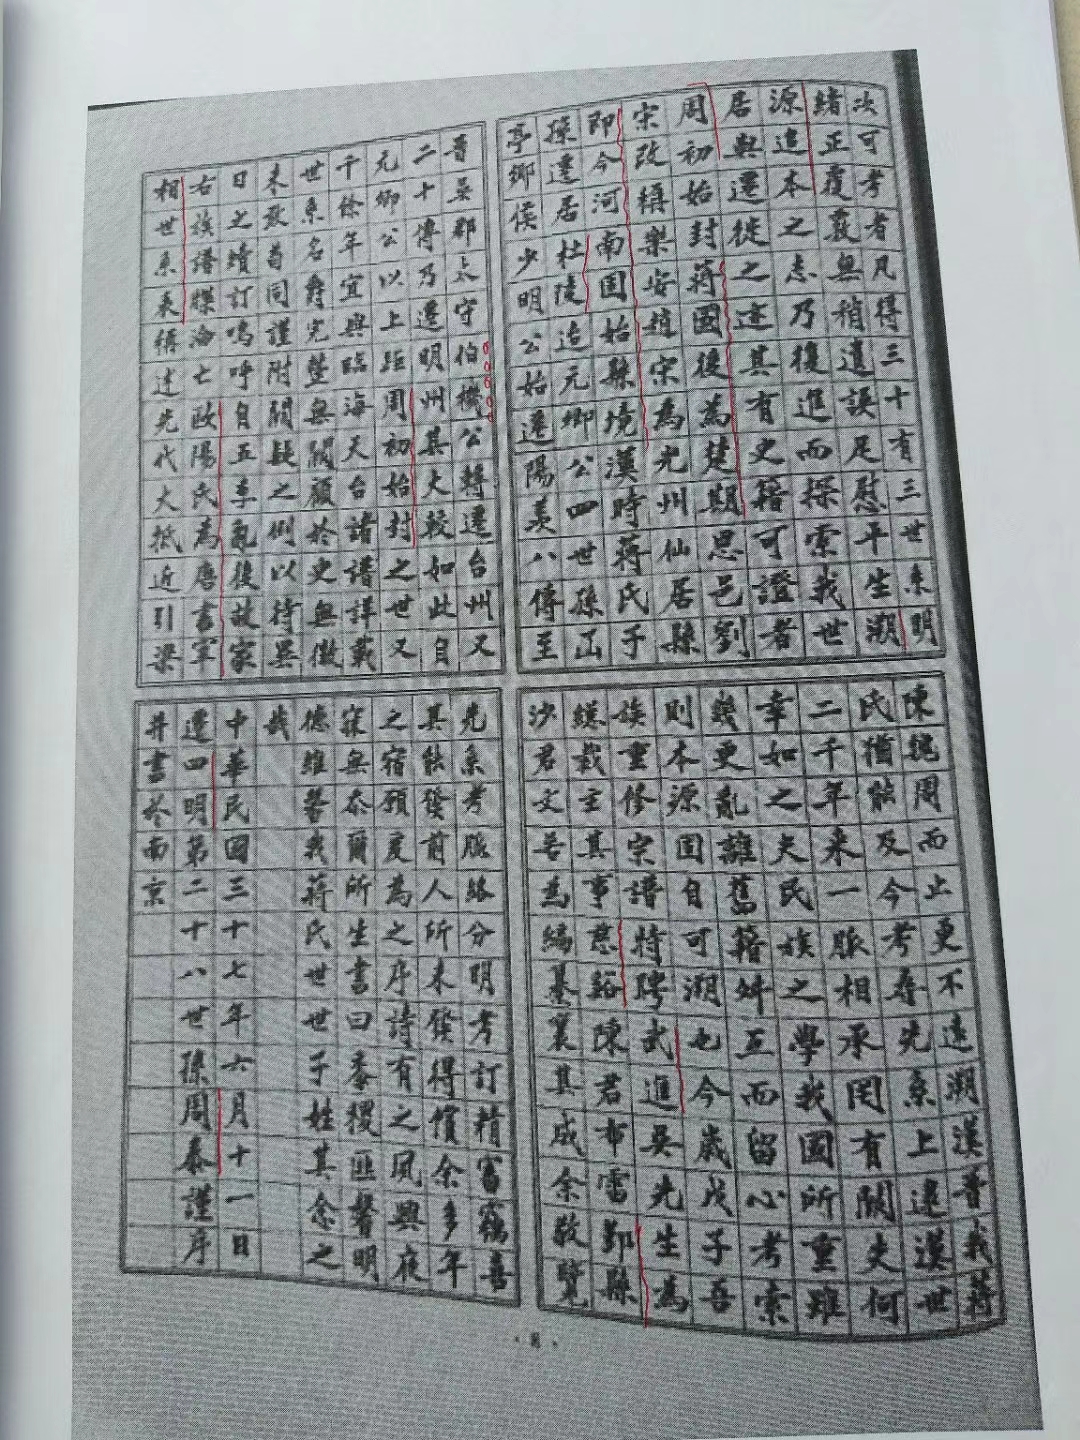 次可考者凡得三十有三世系明
緒正覆覈無稍遺誤足慰平生溯
源追本之志乃復進而探索我世
居與遷徙之迹其有史籍可證者
周初始封蔣國後為楚期思邑劉
宋改稱樂安趙宋為光州仙居縣
即今河南固始縣境漢時蔣氏子
孫遷居杜陵迨元卿公四世孫
亭鄉侯少明公始遷陽羨八傳至
晉吳郡太守伯機公轉遷台州又
二十傳乃遷明州其大較如此自
元卿公以上距周初始封之世又
千餘年宜興臨海天台諸譜詳載
世系名爵完整無闕顧於史無徵
未敢苟同謹附闕疑之例以待異
日之續訂嗚呼自五季亂後故家
右族譜牒淪亡歐陽氏為唐書宰
相世系表稱述先代大抵近引梁
陳魏周而止更不遠溯漢晉我蔣
氏猶能及今考尋先系上逮漢世
二千年來一脈相承罔有闕夫何
幸如之夫民族之學我國所重雖
幾更亂離舊籍舛互而留心考索
則本源固自可溯也今歲戊子吾
族重修宗譜特聘武進吳先生為
總裁主其事慈谿陳君布雷鄞縣
沙君文若為編纂襄其成余敬覽
先系考脈絡分明考訂精審竊喜
其能發前人所未發得償余多年
之宿願爰為之序詩有之夙興夜
寐無忝爾所生書曰黍稷匪馨明
德維馨我蔣氏世世子姓其念之
哉
中華民國三十七年六月十一日
遷四明第二十八世孫周泰謹序
并書於南京